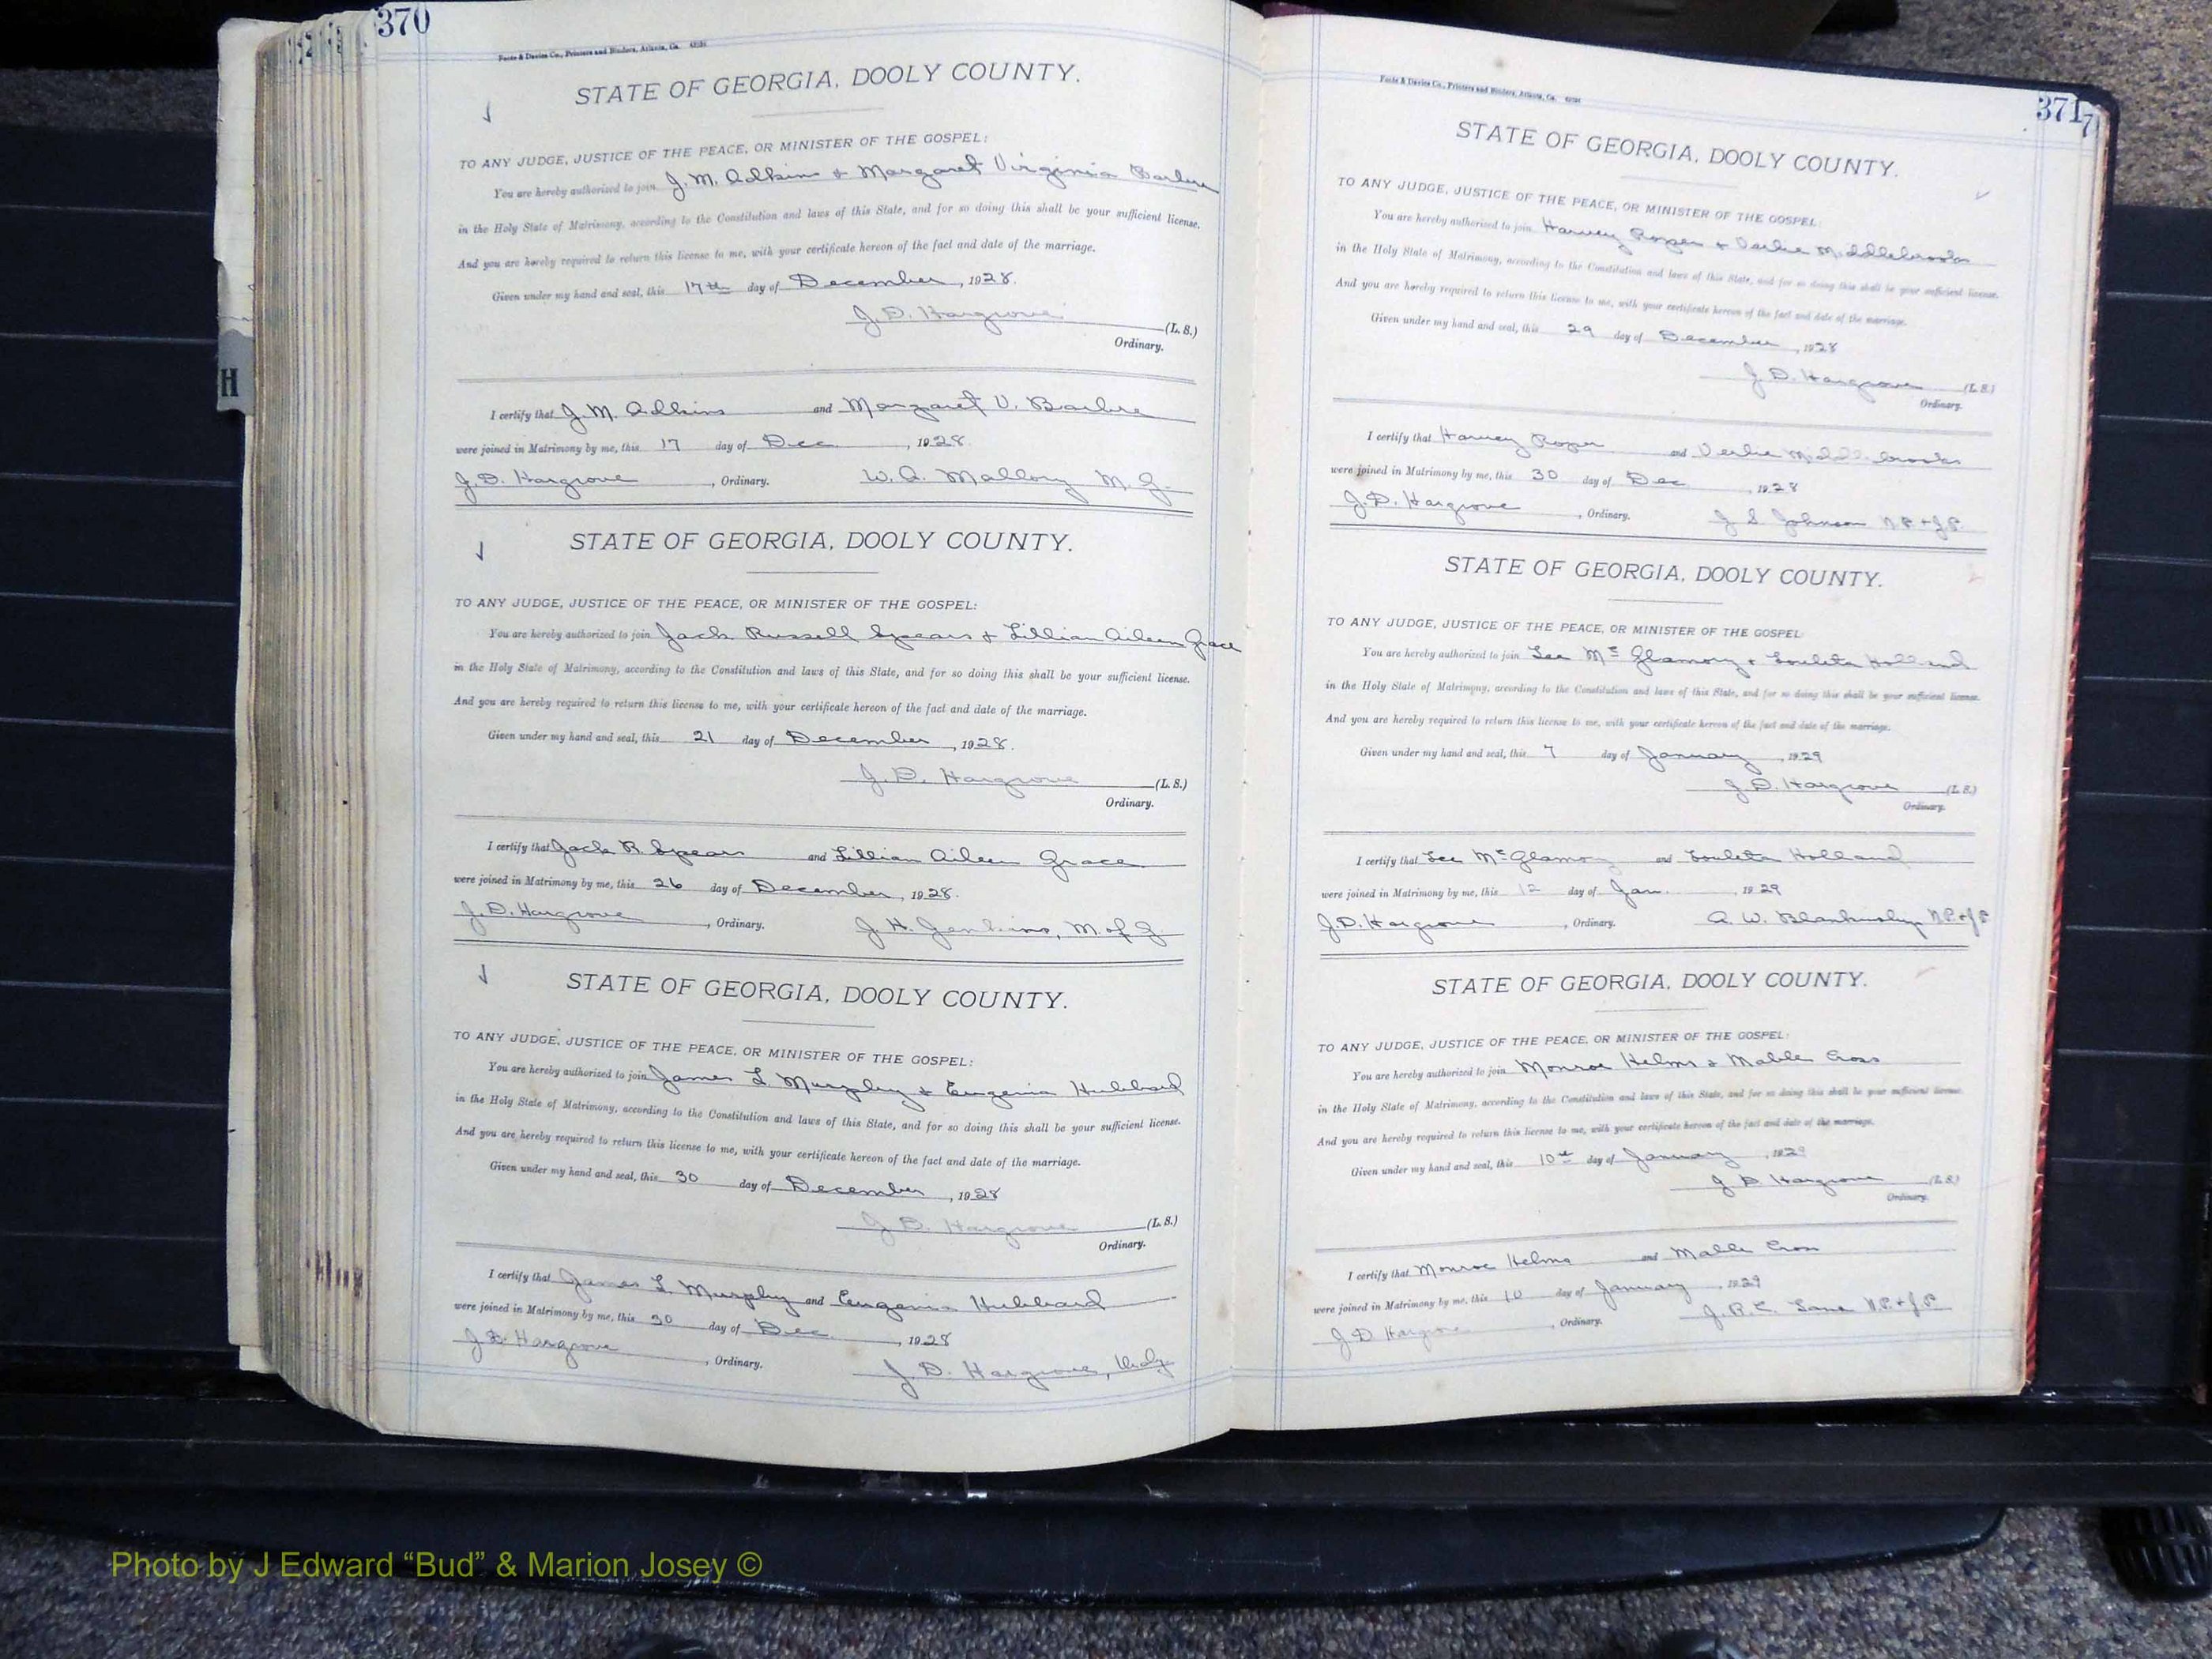 370
Foote & Davies Co., Printers and Binders, Atlanta, Ga.
STATE OF GEORGIA, DOOLY COUNTY.
TO ANY JUDGE, JUSTICE OF THE PEACE, OR MINISTER OF THE GOSPEL:
You are hereby authorized to join J. M. Adkins & Margaret Virginia Barbre
in the Holy State of Matrimony, according to the Constitution and laws of this State, and for so doing this shall be your sufficient license.
And you are hereby required to return this license to me, with your certificate hereon of the fact and date of the marriage.
Given under my hand and seal, this 17th day of December, 1928.
J. D. Hargrove (L. S.)
Ordinary.
I certify that J. M. Adkins and Margaret V. Barbre
were joined in Matrimony by me, this 17 day of Dec., 1928.
J. D. Hargrove, Ordinary. W. A. Mallory M. G.
STATE OF GEORGIA, DOOLY COUNTY.
TO ANY JUDGE, JUSTICE OF THE PEACE, OR MINISTER OF THE GOSPEL:
You are hereby authorized to join Jack Russell Spears & Lillian Aileen Grace
in the Holy State of Matrimony, according to the Constitution and laws of this State, and for so doing this shall be your sufficient license.
And you are hereby required to return this license to me, with your certificate hereon of the fact and date of the marriage.
Given under my hand and seal, this 21 day of December, 1928.
J. D. Hargrove (L. S.)
Ordinary.
I certify that Jack R. Spears and Lillian Aileen Grace
were joined in Matrimony by me, this 26 day of December, 1928.
J. D. Hargrove, Ordinary. J. H. Jenkins, M. of G.
STATE OF GEORGIA, DOOLY COUNTY.
TO ANY JUDGE, JUSTICE OF THE PEACE, OR MINISTER OF THE GOSPEL:
You are hereby authorized to join James L. Murphy & Eugenia Hubbard
in the Holy State of Matrimony, according to the Constitution and laws of this State, and for so doing this shall be your sufficient license.
And you are hereby required to return this license to me, with your certificate hereon of the fact and date of the marriage.
Given under my hand and seal, this 30 day of December, 1928
J. D. Hargrove (L. S.)
Ordinary.
I certify that James L. Murphy and Eugenia Hubbard
were joined in Matrimony by me, this 30 day of Dec., 1928
J. D. Hargrove, Ordinary. J. D. Hargrove,
H
371
Foote & Davies Co., Printers and Binders, Atlanta, Ga.
STATE OF GEORGIA, DOOLY COUNTY.
TO ANY JUDGE, JUSTICE OF THE PEACE, OR MINISTER OF THE GOSPEL:
You are hereby authorized to join Harvey Roper & Verlie Middlebrooks
in the Holy State of Matrimony, according to the Constitution and laws of this State, and for so doing this shall be your sufficient license.
And you are hereby required to return this license to me, with your certificate hereon of the fact and date of the marriage.
Given under my hand and seal, this 29 day of December, 1928
J. D. Hargrove (L. S.)
Ordinary.
I certify that Harvey Roper and Verlie Middlebrooks
were joined in Matrimony by me, this 30 day of Dec, 1928
J. D. Hargrove, Ordinary. J. S. Johnson N.P. & J.P.
STATE OF GEORGIA, DOOLY COUNTY.
TO ANY JUDGE, JUSTICE OF THE PEACE, OR MINISTER OF THE GOSPEL:
You are hereby authorized to join Lee McGlamory & Louleta Holland
in the Holy State of Matrimony, according to the Constitution and laws of this State, and for so doing this shall be your sufficient license.
And you are hereby required to return this license to me, with your certificate hereon of the fact and date of the marriage.
Given under my hand and seal, this 7 day of January, 1929
J. D. Hargrove (L. S.)
Ordinary.
I certify that Lee McGlamory and Louleta Holland
were joined in Matrimony by me, this 12 day of Jan., 1929
J. D. Hargrove, Ordinary. A. W. Blankinship N.P. & J.P.
STATE OF GEORGIA, DOOLY COUNTY.
TO ANY JUDGE, JUSTICE OF THE PEACE, OR MINISTER OF THE GOSPEL:
You are hereby authorized to join Monroe Helms & Mable Cross
in the Holy State of Matrimony, according to the Constitution and laws of this State, and for so doing this shall be your sufficient license.
And you are hereby required to return this license to me, with your certificate hereon of the fact and date of the marriage.
Given under my hand and seal, this 10th day of January, 1929
J. D. Hargrove (L. S.)
Ordinary.
I certify that Monroe Helms and Mable Cross
were joined in Matrimony by me, this 10 day of January, 1929
J. D. Hargrove, Ordinary. J. R. E. Lane N.P. & J.P.
Photo by J Edward “Bud” & Marion Josey ©